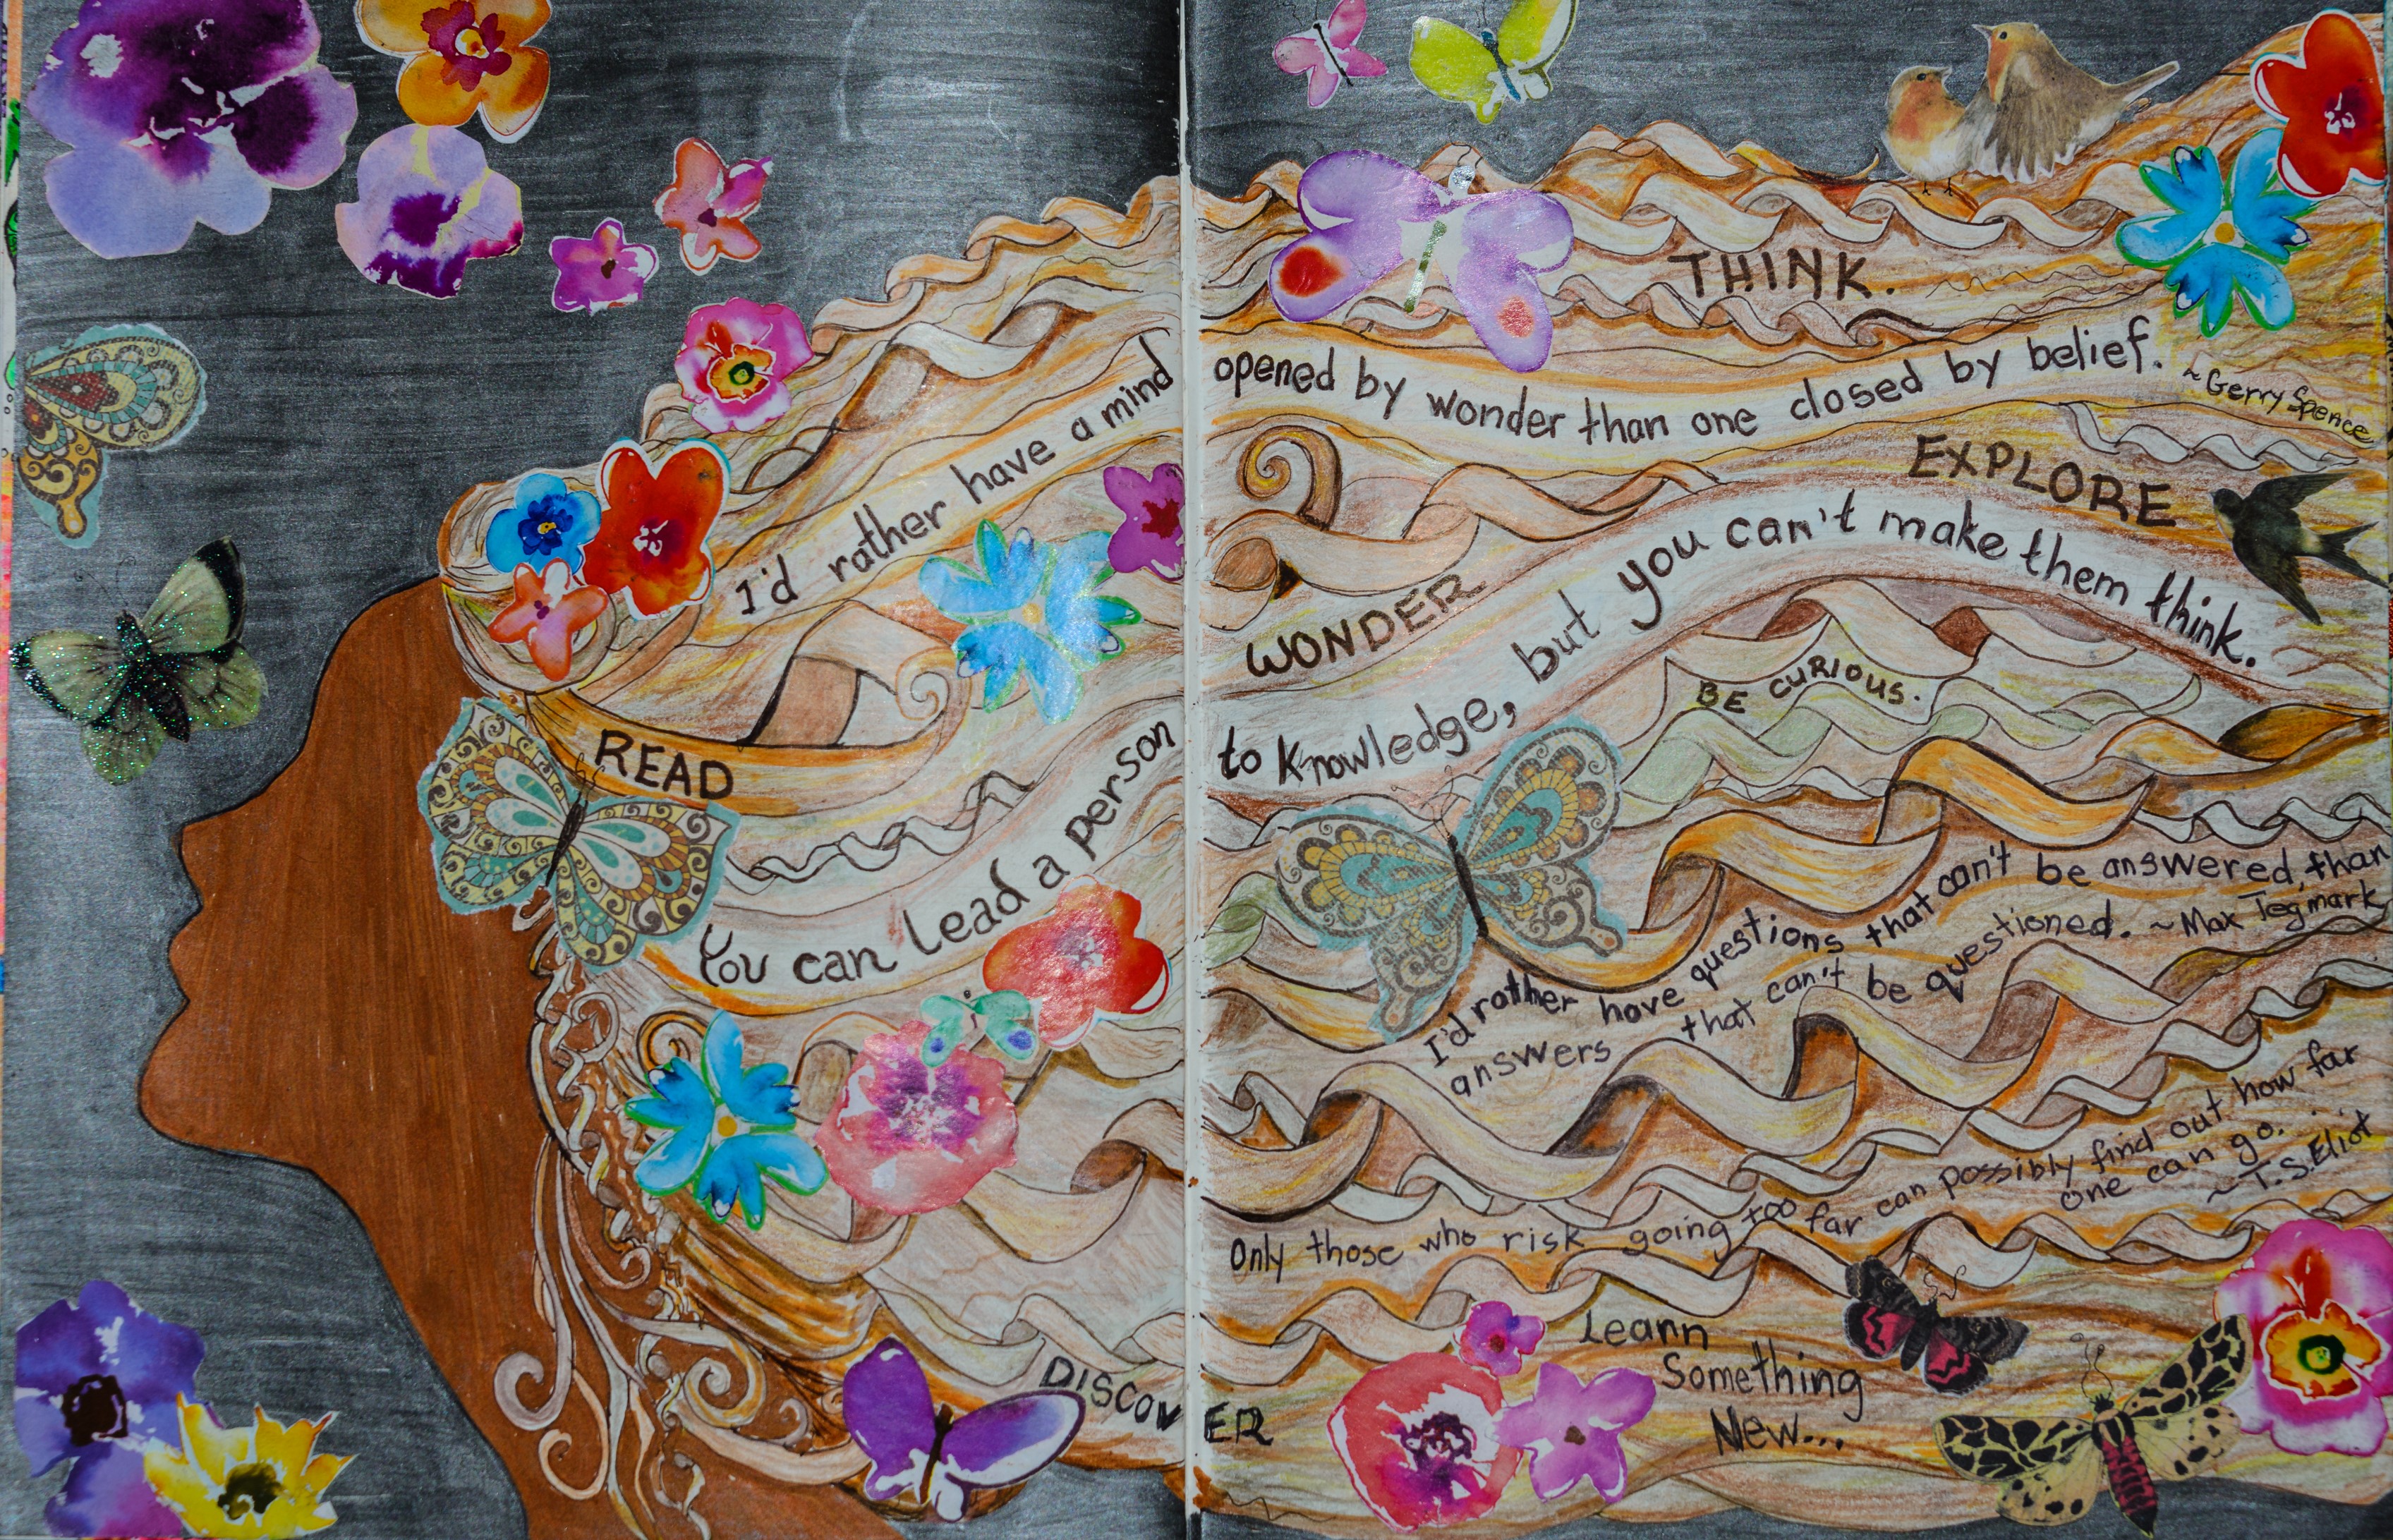 THINK.
I'd rather have a mind opened by wonder than one closed by belief.
~Gerry Spence
EXPLORE
WONDER
READ
You can lead a person to knowledge, but you can't make them think.
BE CURIOUS.
I'd rather have questions that can't be answered, than
answers that can't be questioned. ~Max Tegmark
Only those who risk going too far can possibly find out how far
one can go.
~T.S.Eliot
DISCOVER
Learn
Something
New...